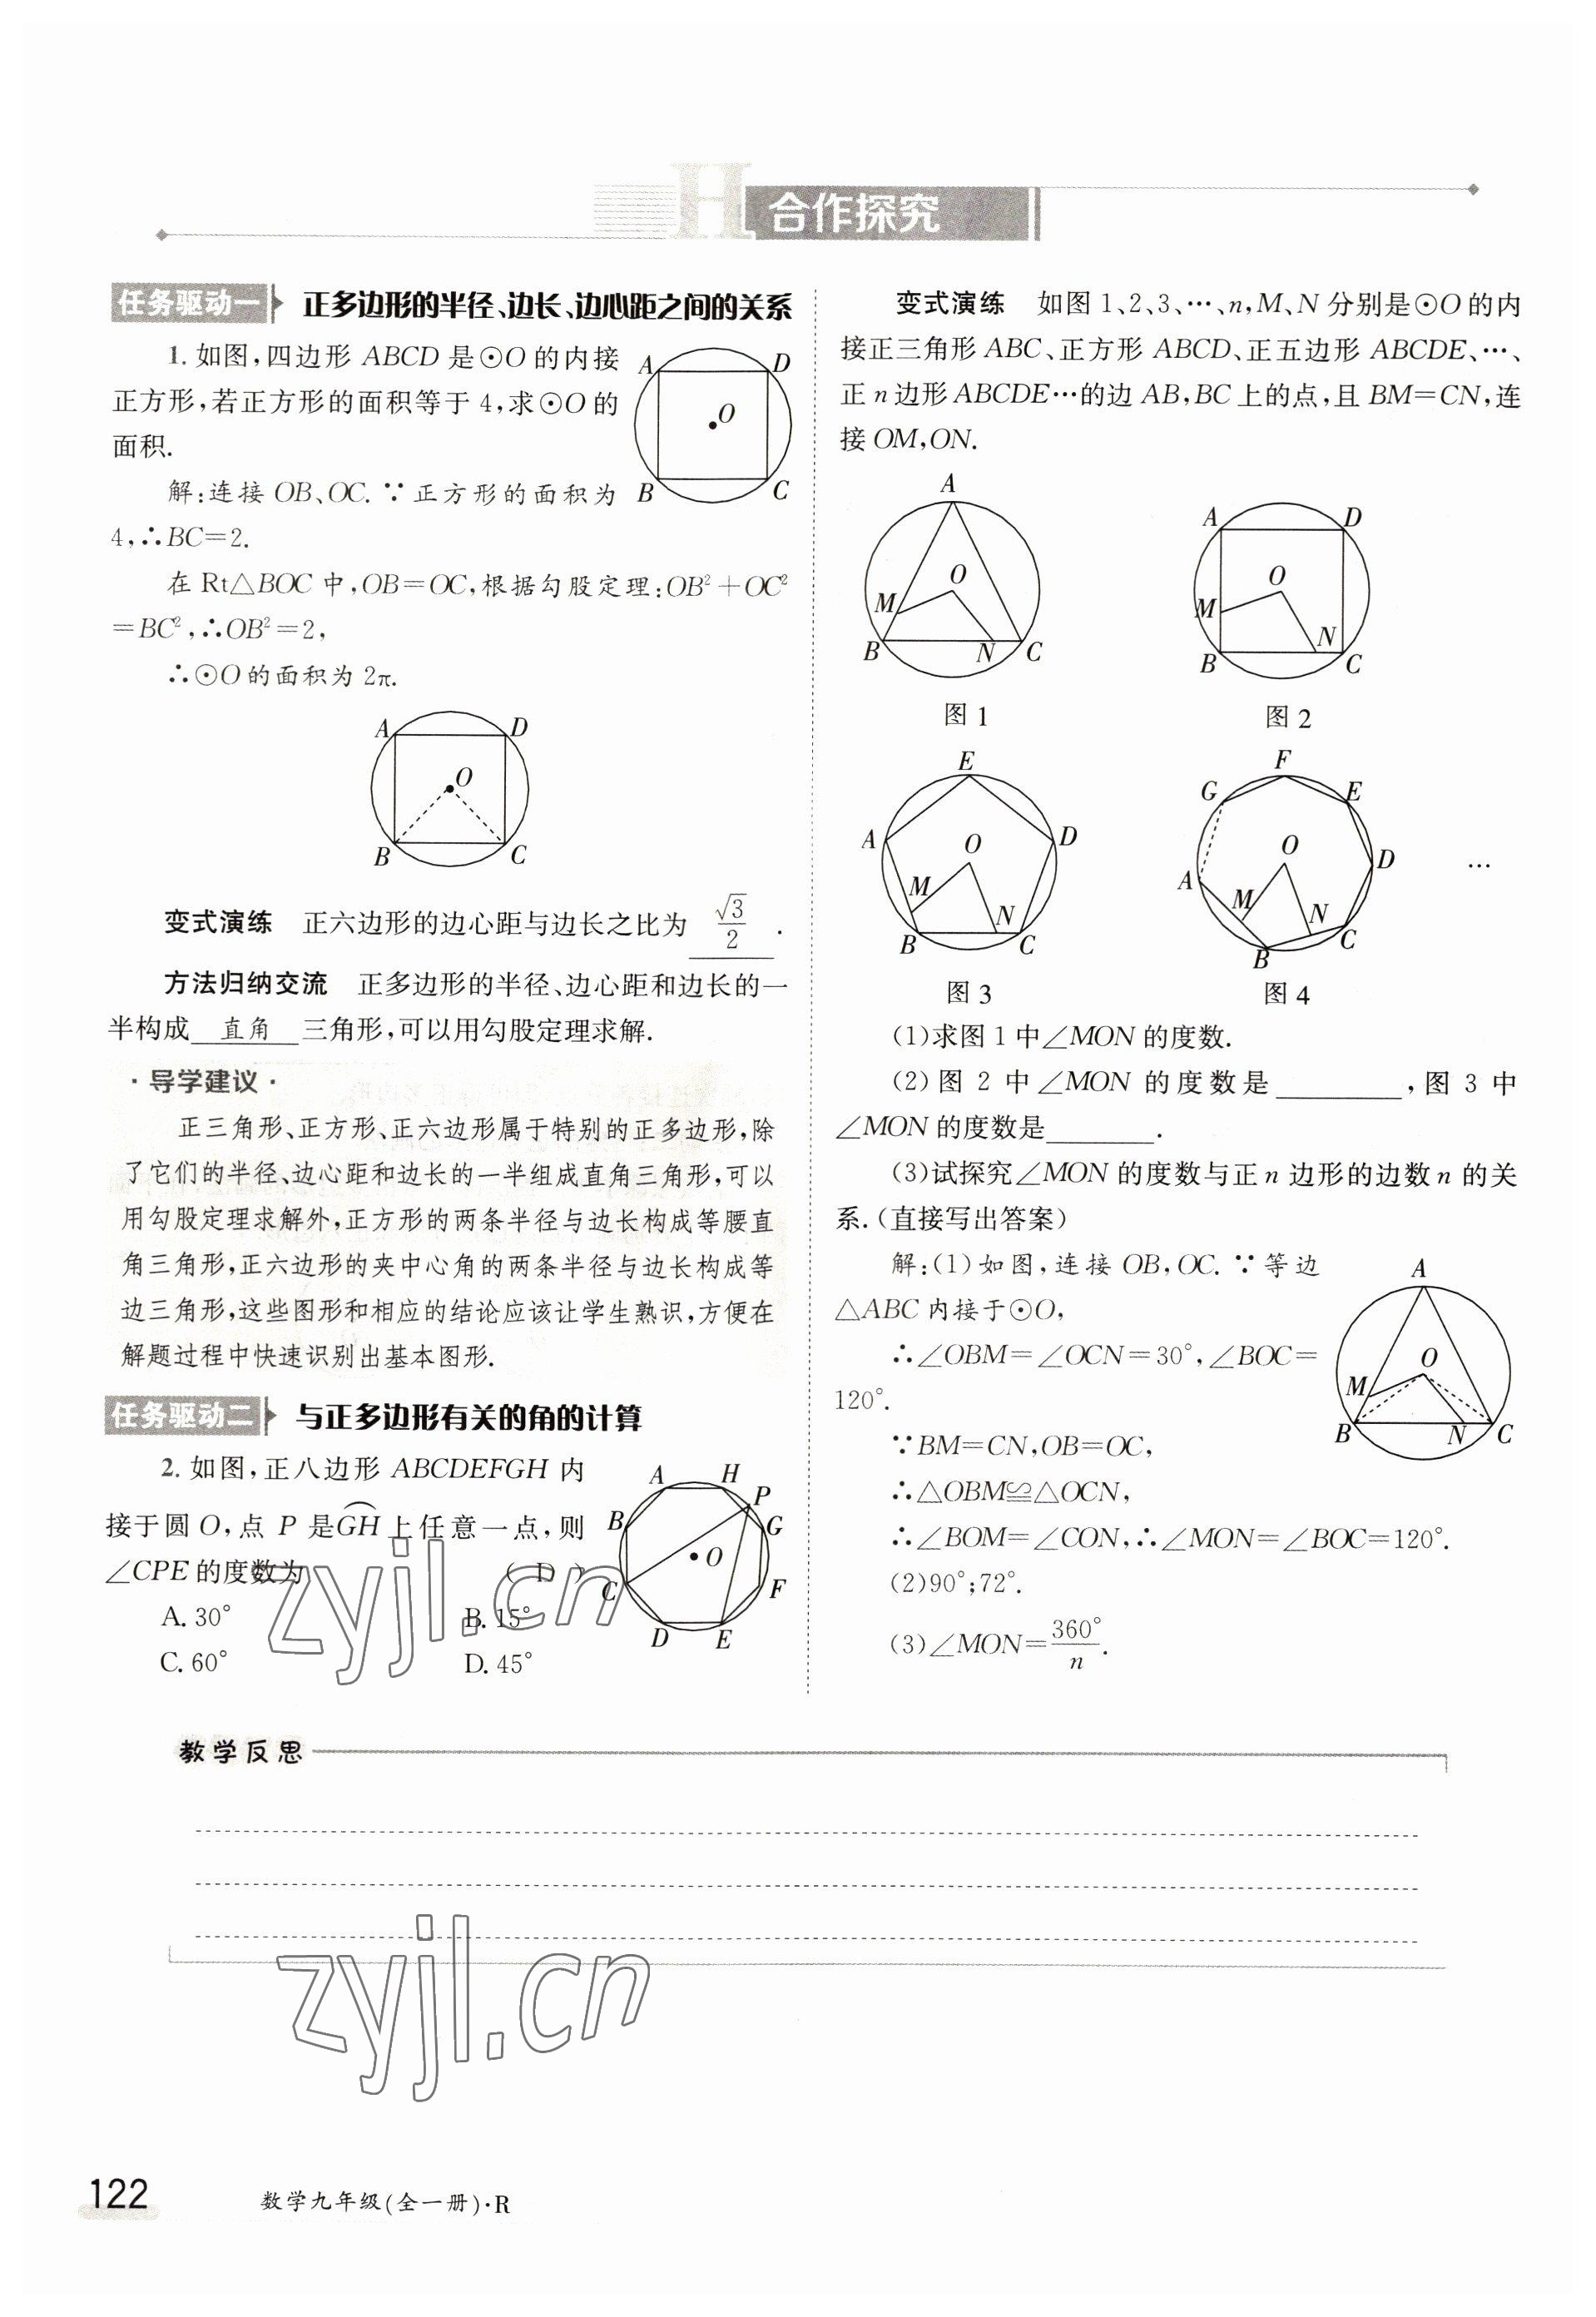 H 合作探究
任务驱动一 正多边形的半径、边长、边心距之间的关系
1. 如图,四边形 ABCD 是⊙O 的内接
正方形,若正方形的面积等于 4,求⊙O 的
面积.
A D
O
B C
解:连接 OB、OC. ∵正方形的面积为
4,∴BC=2.
在 Rt△BOC 中,OB=OC,根据勾股定理:OB²+OC²
=BC²,∴OB²=2,
∴⊙O 的面积为 2π.
A D
O
B C
变式演练 正六边形的边心距与边长之比为 √3/2 .
方法归纳交流 正多边形的半径、边心距和边长的一
半构成 直角 三角形,可以用勾股定理求解.
·导学建议·
正三角形、正方形、正六边形属于特别的正多边形,除
了它们的半径、边心距和边长的一半组成直角三角形,可以
用勾股定理求解外,正方形的两条半径与边长构成等腰直
角三角形,正六边形的夹中心角的两条半径与边长构成等
边三角形,这些图形和相应的结论应该让学生熟识,方便在
解题过程中快速识别出基本图形.
任务驱动二 与正多边形有关的角的计算
2. 如图,正八边形 ABCDEFGH 内
接于圆 O,点 P 是G͡H上任意一点,则
∠CPE 的度数为 ( D )
A. 30° B. 15°
C. 60° D. 45°
A H P
B G
O
C F
D E
变式演练 如图 1、2、3、…、n,M、N 分别是⊙O 的内
接正三角形 ABC、正方形 ABCD、正五边形 ABCDE、…、
正 n 边形 ABCDE…的边 AB,BC 上的点,且 BM=CN,连
接 OM,ON.
A
O
M
B N C
图 1
A D
O
M N
B C
图 2
E
A D
O
M N
B C
图 3
F
G E
O D
A M N
B C
图 4
…
(1)求图 1 中∠MON 的度数.
(2)图 2 中∠MON 的度数是________,图 3 中
∠MON 的度数是________.
(3)试探究∠MON 的度数与正 n 边形的边数 n 的关
系.(直接写出答案)
解:(1)如图,连接 OB,OC. ∵等边
△ABC 内接于⊙O,
∴∠OBM=∠OCN=30°,∠BOC=
120°.
∵BM=CN,OB=OC,
∴△OBM≌△OCN,
∴∠BOM=∠CON,∴∠MON=∠BOC=120°.
(2)90°;72°.
(3)∠MON=360°/n.
A
O
M
B N C
教学反思
zyjl.cn
zyjl.cn
122
数学九年级(全一册)·R